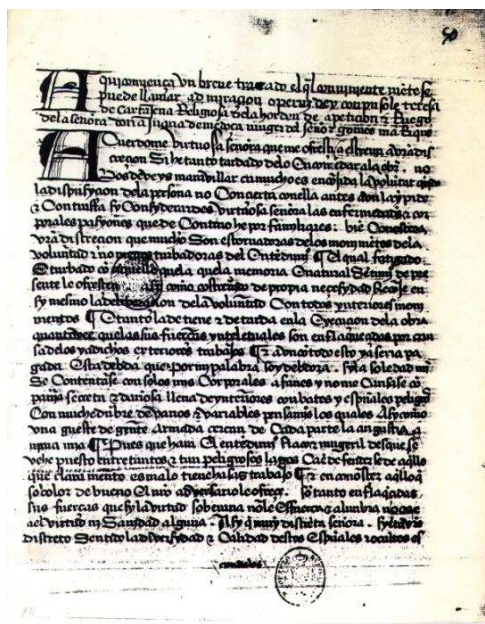 50
Aqui comiença vn breue tratado el q̃l conuiniente mẽte se
puede llamar admiraçion operũ dey conpusole teresa
de cartajena Religiosa dela horden de a petiçion & Ruego
dela señora doña juana de mẽdoça muger del señor gomes mãrique
Acuerdome virtuosa señora que me ofresçi a escreuir a vr̃a dis
creçion Si he tanto tardado delo Encomendar ala obr̃a no
vos deueys marauillar ca mucho es encojida la voluntad quãdo
la dispusyçion dela persona no Conçierta con ella antes avn la ynpide
& Contrasta sy Considerardes virtuosa señora las enfermedades & cor
porales pasyones que de Contino he por familiares bie Conosçera
vr̃a discreçion que mucho Son estoruadoras delos mouimiẽtos dela
voluntad & no menos turbadoras del Entẽdimiẽto El qual fatigado
& turbado cõ aquello quela memoria & natural Sẽtimiẽto de pre
sente le ofresçen asy como costreñido de propia neçesydad Recoje en
sy mesmo la deliberaçion dela voluntad Con todos ynteriores moui
mientos & tanto la detiene & detarda enla Execuçion dela obra
quanto vee quelas sus fuerças yntelectuales son enflaquesçidas por cau
sa delos ya dichos exteriores trabajos & avn con todo esto ya seria pa
gada Esta debda que por mi palabra soy debdora Sy la soledad mia
Se Contẽtase con solos mis Corporales afanes y no me Causase cõ
pañia secreta & dañosa llena de ynteriores conbates y espũales peligros
Con muchedũbre de vanos & variables pensamiẽtos los quales Asy como
vna hueste de gente Armada çercan de Cada parte la angustiada
anima mia Pues que hara El entẽdimiẽto flaco & mugeril desque se
vehe puesto entre tantos & tan peligrosos lazos Ca de fenderse de aq̃llo
que clara mente es malo tiene harto trabajo & en conosçer aq̃llo q̃
so color de bueno El nr̃o adversario le ofreçe Sõ tanto enflaq̃çidas
sus fuerças que sy la virtud soberana no le Esfuerça & alunbra no es
a el virtud ni Sanidad alguna Asy q̃ muy discreta señora Syenta vr̃o
discreto Sentido la diuersydad & Calidad destos Espũales & ocultos es